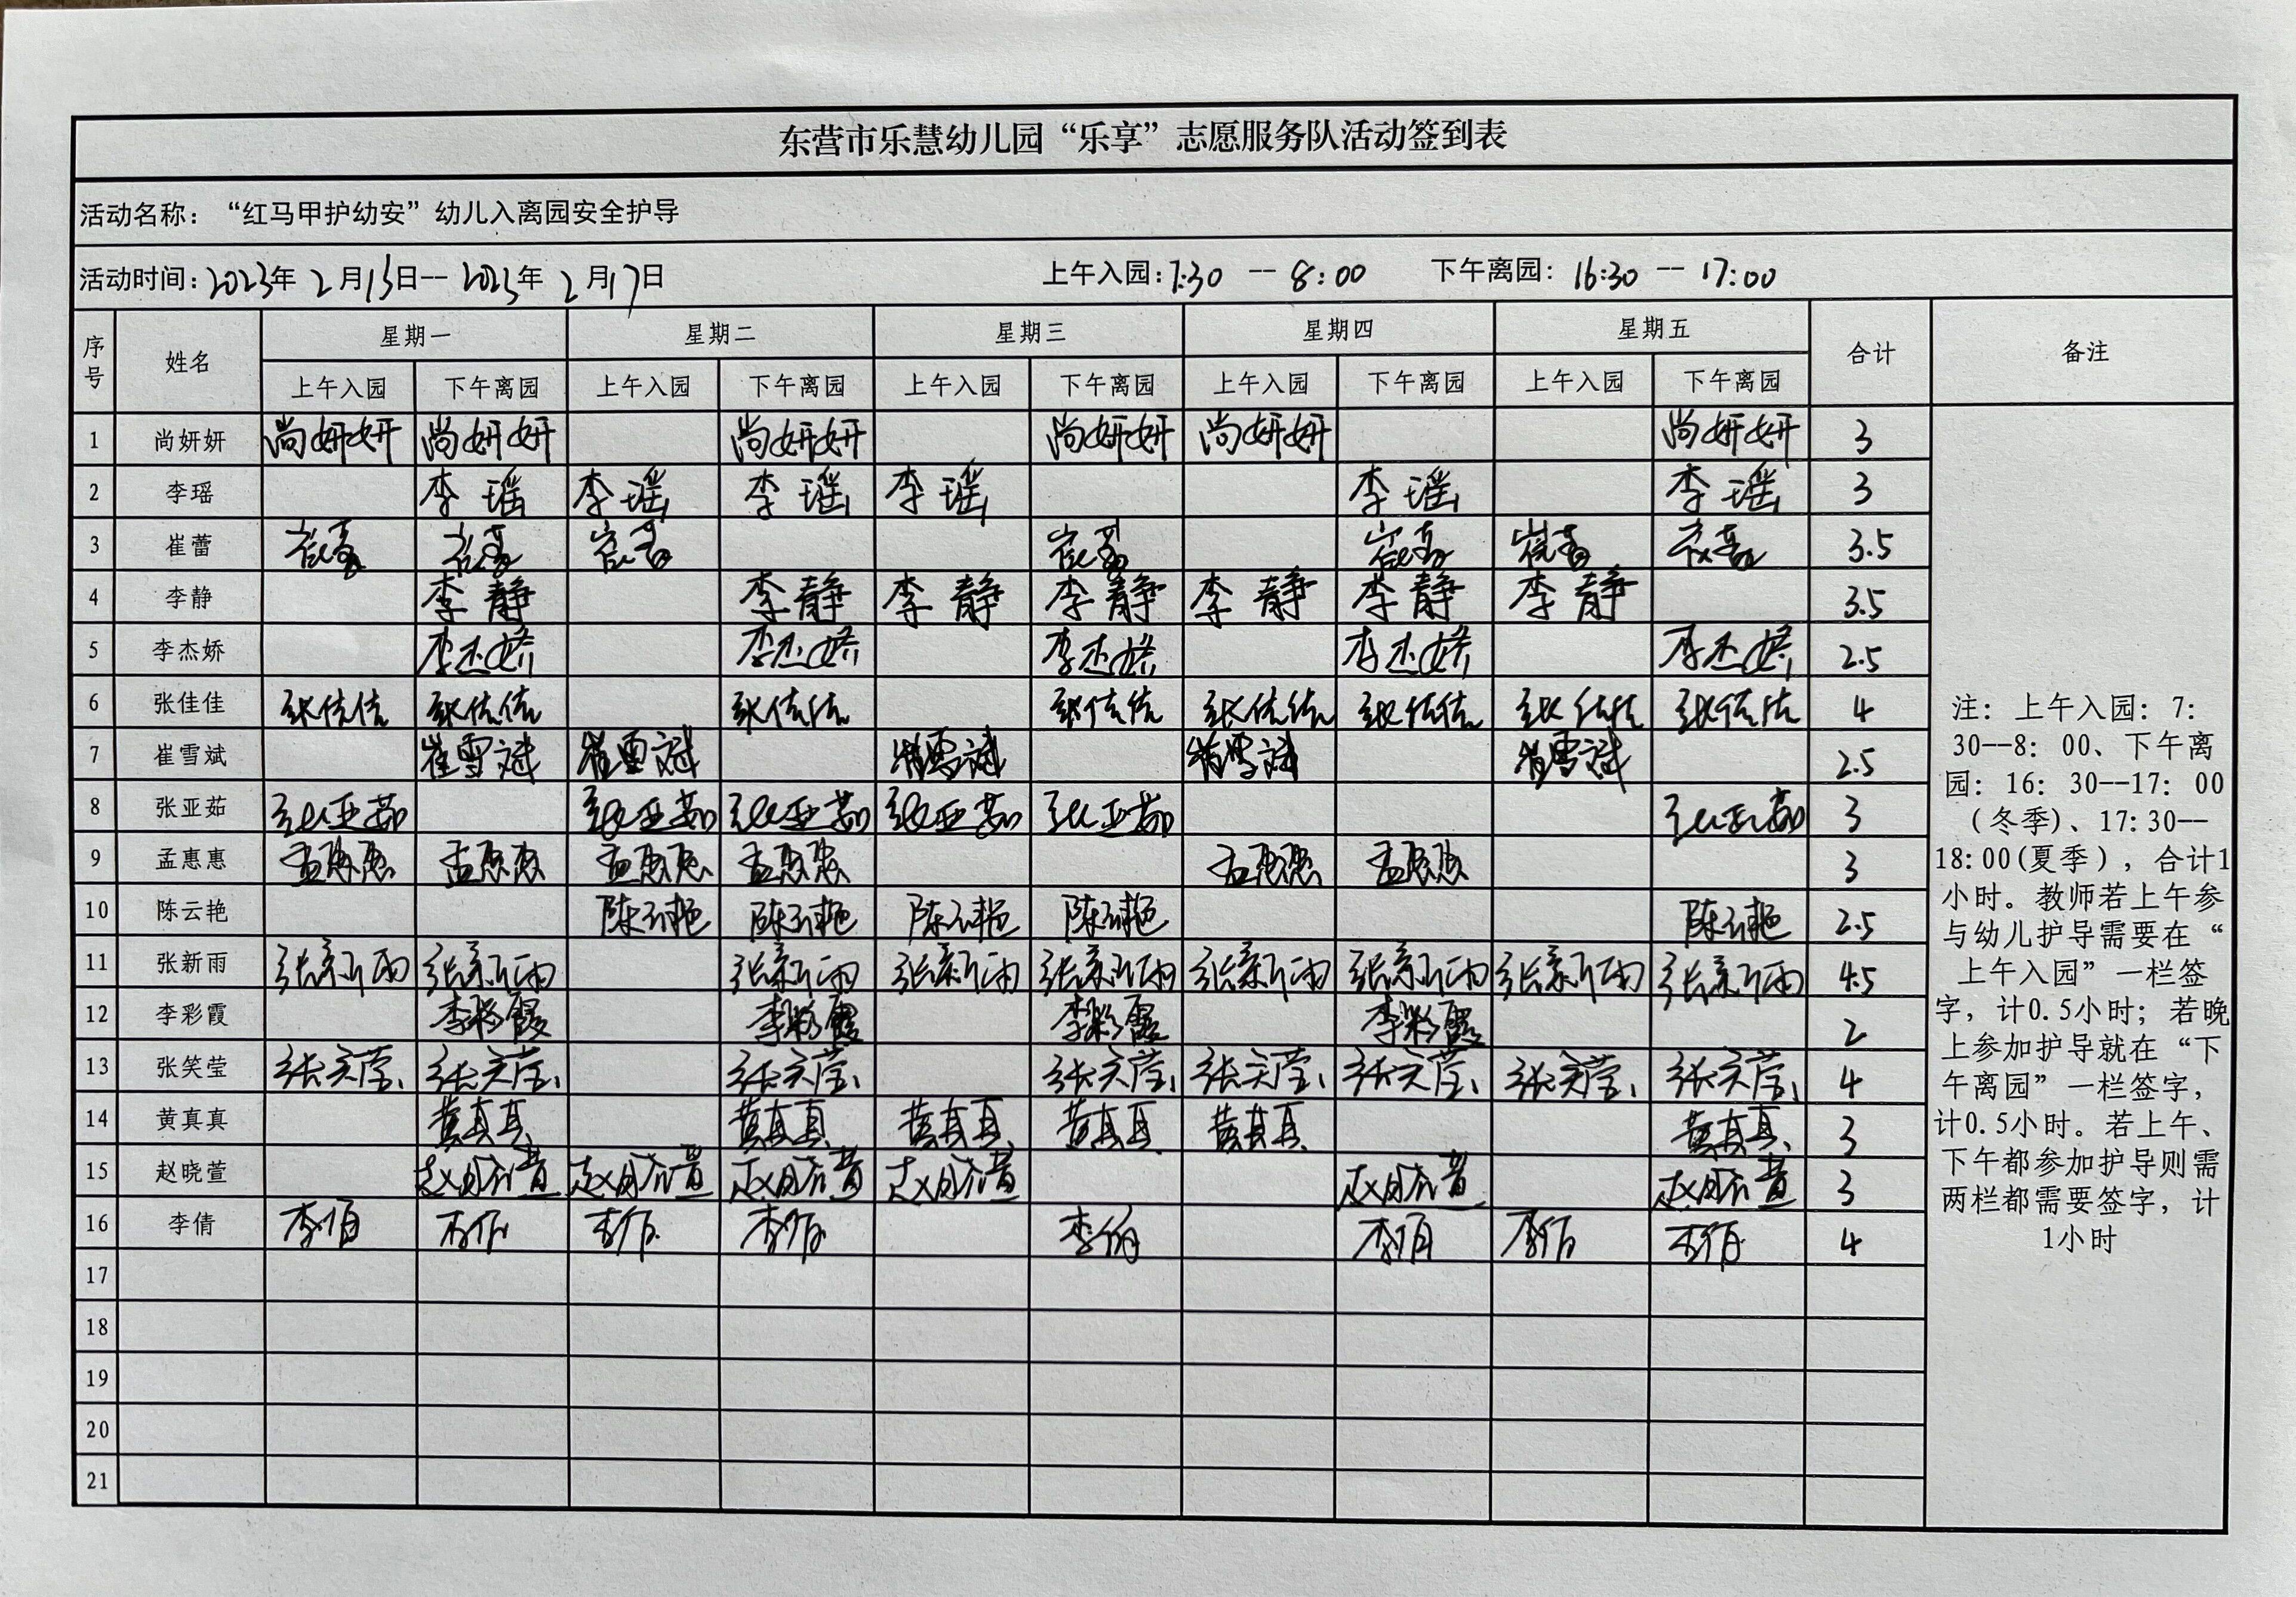 东营市乐慧幼儿园“乐享”志愿服务队活动签到表
活动名称：“红马甲护幼安”幼儿入离园安全护导
活动时间：2023年 2月13日--2023年 2月17日 上午入园：7:30 -- 8:00 下午离园：16:30 -- 17:00
序号 姓名 星期一 星期二 星期三 星期四 星期五 合计 备注
上午入园 下午离园 上午入园 下午离园 上午入园 下午离园 上午入园 下午离园 上午入园 下午离园
1 尚妍妍 尚妍妍 尚妍妍 尚妍妍 尚妍妍 尚妍妍 尚妍妍 3
2 李瑶 李瑶 李瑶 李瑶 李瑶 李瑶 李瑶 3
3 崔蕾 崔蕾 崔蕾 崔蕾 崔蕾 崔蕾 崔蕾 崔蕾 3.5
4 李静 李静 李静 李静 李静 李静 李静 李静 3.5
5 李杰娇 李杰娇 李杰娇 李杰娇 李杰娇 李杰娇 2.5
6 张佳佳 张佳佳 张佳佳 张佳佳 张佳佳 张佳佳 张佳佳 张佳佳 张佳佳 4
7 崔雪斌 崔雪斌 崔雪斌 崔雪斌 崔雪斌 崔雪斌 2.5
8 张亚茹 张亚茹 张亚茹 张亚茹 张亚茹 张亚茹 张亚茹 3
9 孟惠惠 孟惠惠 孟惠惠 孟惠惠 孟惠惠 孟惠惠 孟惠惠 3
10 陈云艳 陈云艳 陈云艳 陈云艳 陈云艳 陈云艳 2.5
11 张新雨 张新雨 张新雨 张新雨 张新雨 张新雨 张新雨 张新雨 张新雨 张新雨 4.5
12 李彩霞 李彩霞 李彩霞 李彩霞 李彩霞 2
13 张笑莹 张笑莹 张笑莹 张笑莹 张笑莹 张笑莹 张笑莹 张笑莹 张笑莹 4
14 黄真真 黄真真 黄真真 黄真真 黄真真 黄真真 黄真真 3
15 赵晓萱 赵晓萱 赵晓萱 赵晓萱 赵晓萱 赵晓萱 赵晓萱 3
16 李倩 李倩 李倩 李倩 李倩 李倩 李倩 李倩 李倩 4
17
18
19
20
21
注：上午入园：7：
30--8：00、下午离
园：16：30--17：00
（冬季）、17:30--
18:00(夏季），合计1
小时。教师若上午参
与幼儿护导需要在“
上午入园”一栏签
字，计0.5小时；若晚
上参加护导就在“下
午离园”一栏签字，
计0.5小时。若上午、
下午都参加护导则需
两栏都需要签字，计
1小时